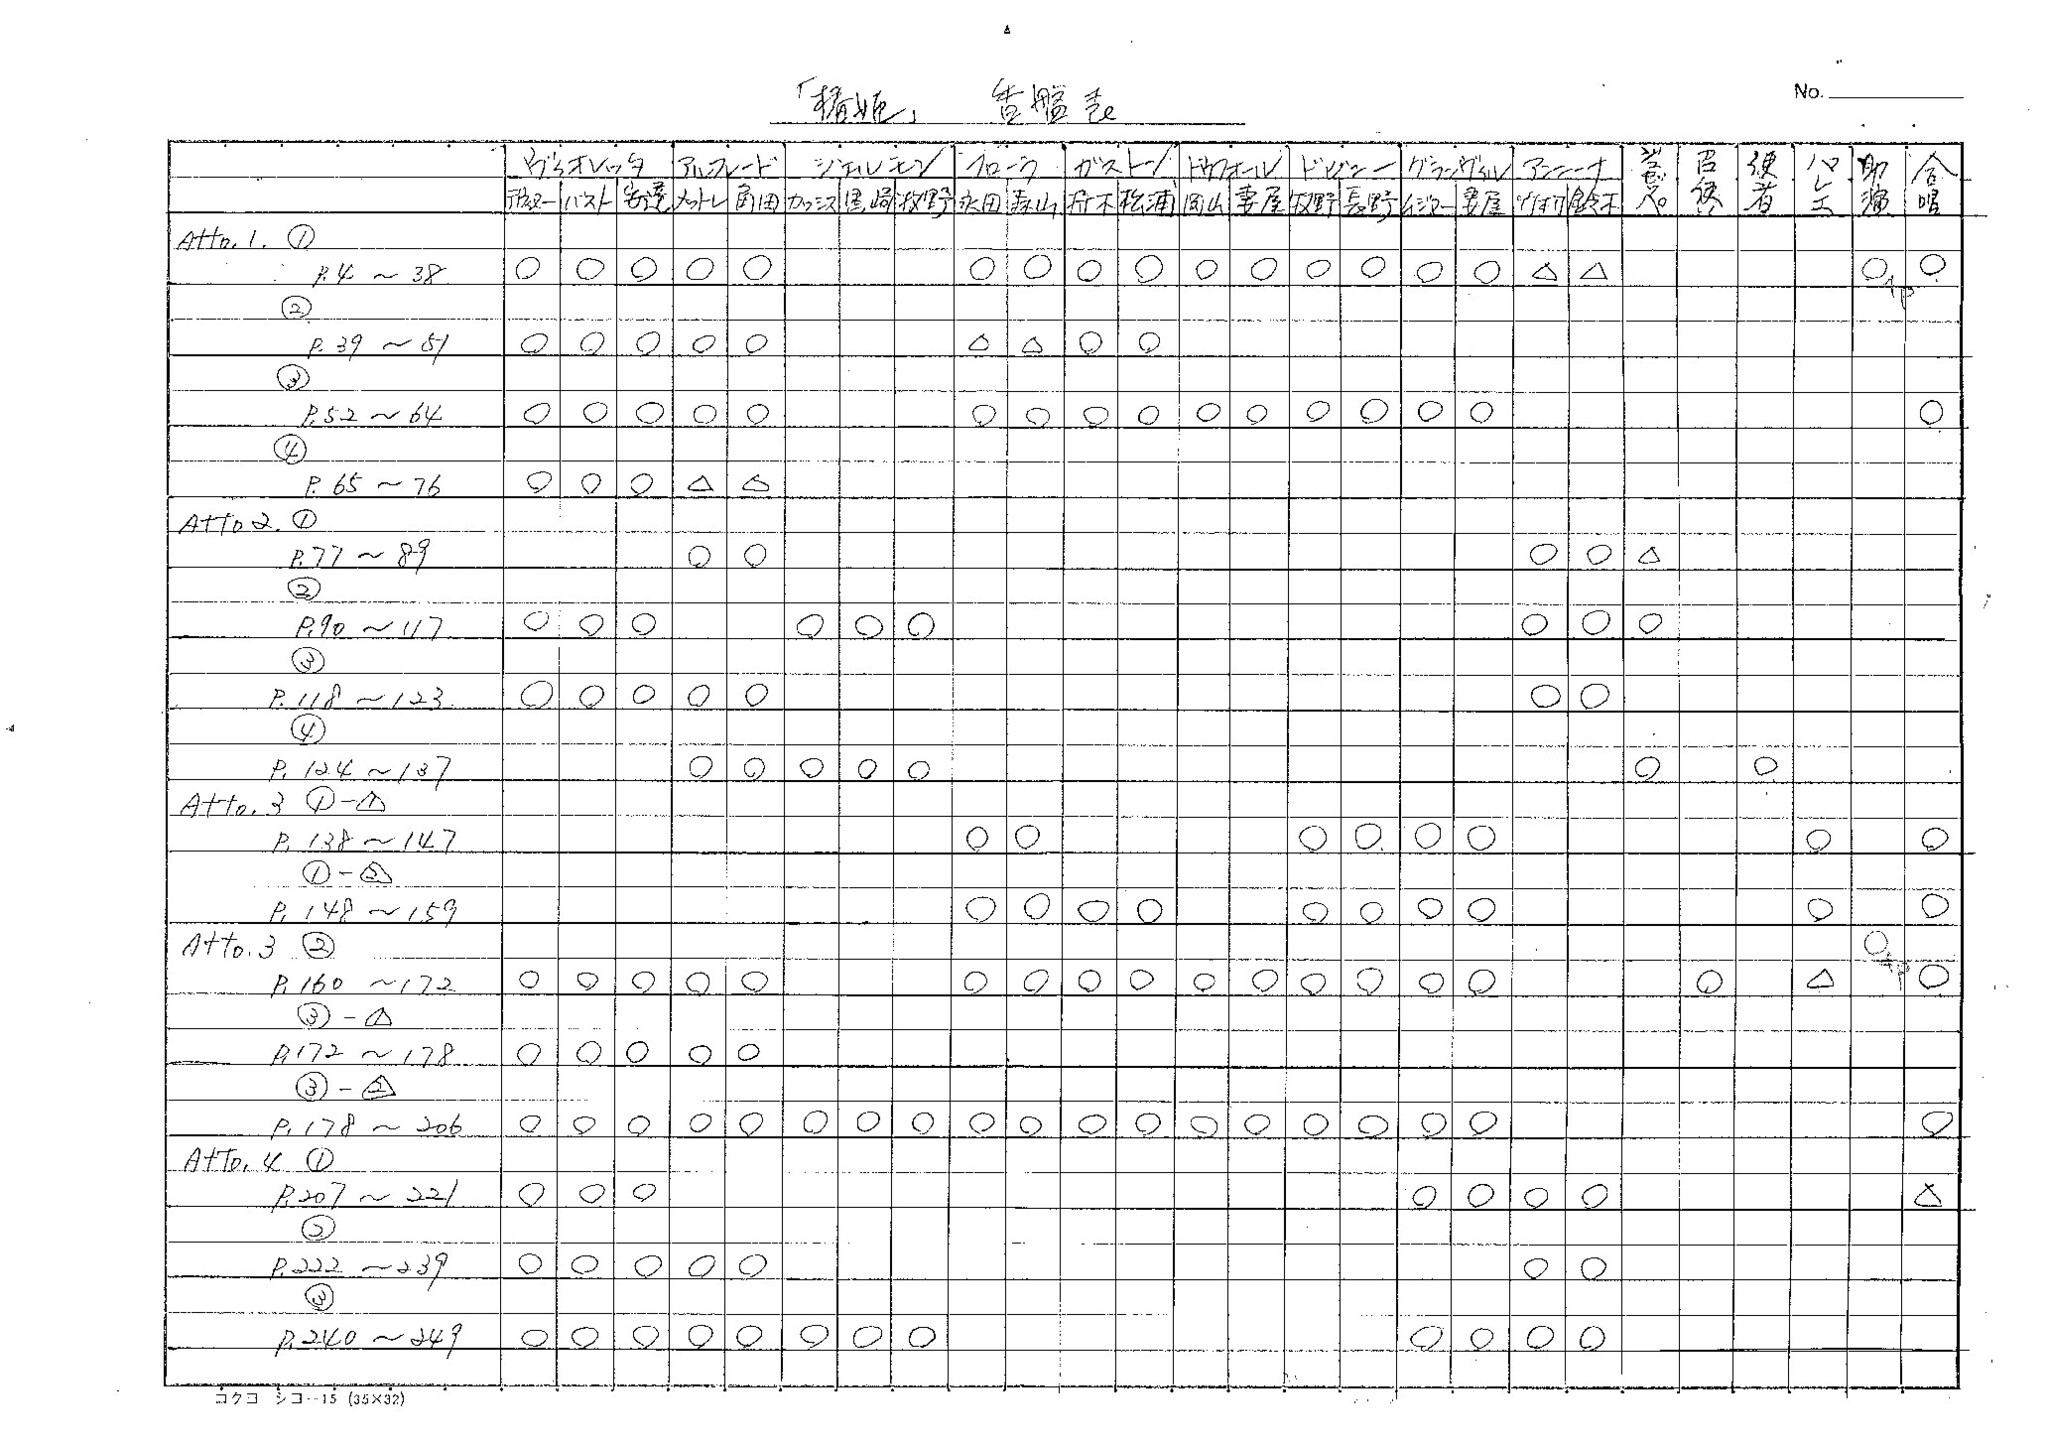 No.
「椿姫」 香盤表
ヴィオレッタ アルフレード ジェルモン フローラ ガストン ドゥフォール ドビニー グランヴィル アンニーナ ジュゼッペ 召使 使者 バレエ 助演 合唱
バスト 安達 メットレ 角田 カッシス 黒崎 牧野 永田 森山 舟木 松浦 岡山 妻屋 牧野 長野 妻屋 鈴木
Atto.1. ①
P.4 ~ 38 ○ ○ ○ ○ ○ ○ ○ ○ ○ ○ ○ ○ ○ ○ ○ △ △ ○ ○
②
P.39 ~ 51 ○ ○ ○ ○ ○ △ △ ○ ○
③
P.52 ~ 64 ○ ○ ○ ○ ○ ○ ○ ○ ○ ○ ○ ○ ○ ○ ○ ○
④
P.65 ~ 76 ○ ○ ○ △ △
Atto 2. ①
P.77 ~ 89 ○ ○ ○ ○ △
②
P.90 ~ 117 ○ ○ ○ ○ ○ ○ ○ ○ ○
③
P.118 ~ 123 ○ ○ ○ ○ ○ ○ ○
④
P.124 ~ 137 ○ ○ ○ ○ ○ ○ ○
Atto.3 ①-△1
P.138 ~ 147 ○ ○ ○ ○ ○ ○ ○ ○
①-△2
P.148 ~ 159 ○ ○ ○ ○ ○ ○ ○ ○ ○ ○
Atto.3 ② ○
P.160 ~ 172 ○ ○ ○ ○ ○ ○ ○ ○ ○ ○ ○ ○ ○ ○ ○ ○ △ ○
③-△1
P.172 ~ 178 ○ ○ ○ ○ ○
③-△2
P.178 ~ 206 ○ ○ ○ ○ ○ ○ ○ ○ ○ ○ ○ ○ ○ ○ ○ ○ ○ ○ ○
Atto.4 ①
P.207 ~ 221 ○ ○ ○ ○ ○ ○ ○ △
②
P.222 ~ 239 ○ ○ ○ ○ ○ ○ ○
③
P.240 ~ 249 ○ ○ ○ ○ ○ ○ ○ ○ ○ ○ ○ ○
コクヨ シヨ-15 (35×32)